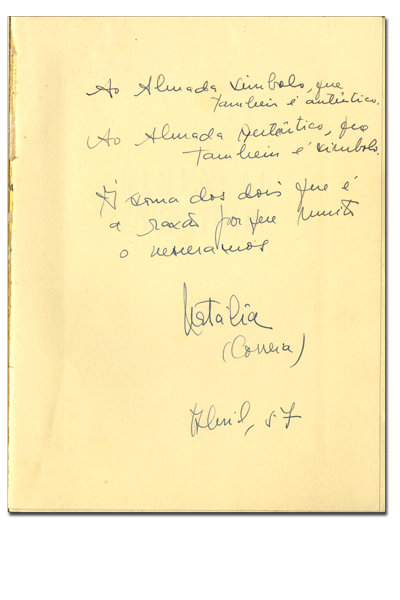 Ao Almada símbolo, que
também é autêntico.
Ao Almada Autêntico, que
também é símbolo.
À soma dos dois que é
a razão porque muito
o veneramos
Natália
(Correia)
Abril, 57